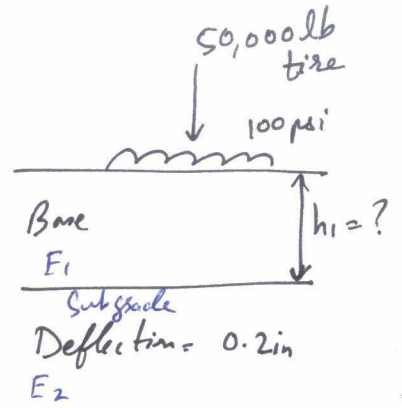 50,000lb
tire
100psi
Base
h₁ = ?
E₁
Subgrade
Deflection = 0.2in
E₂